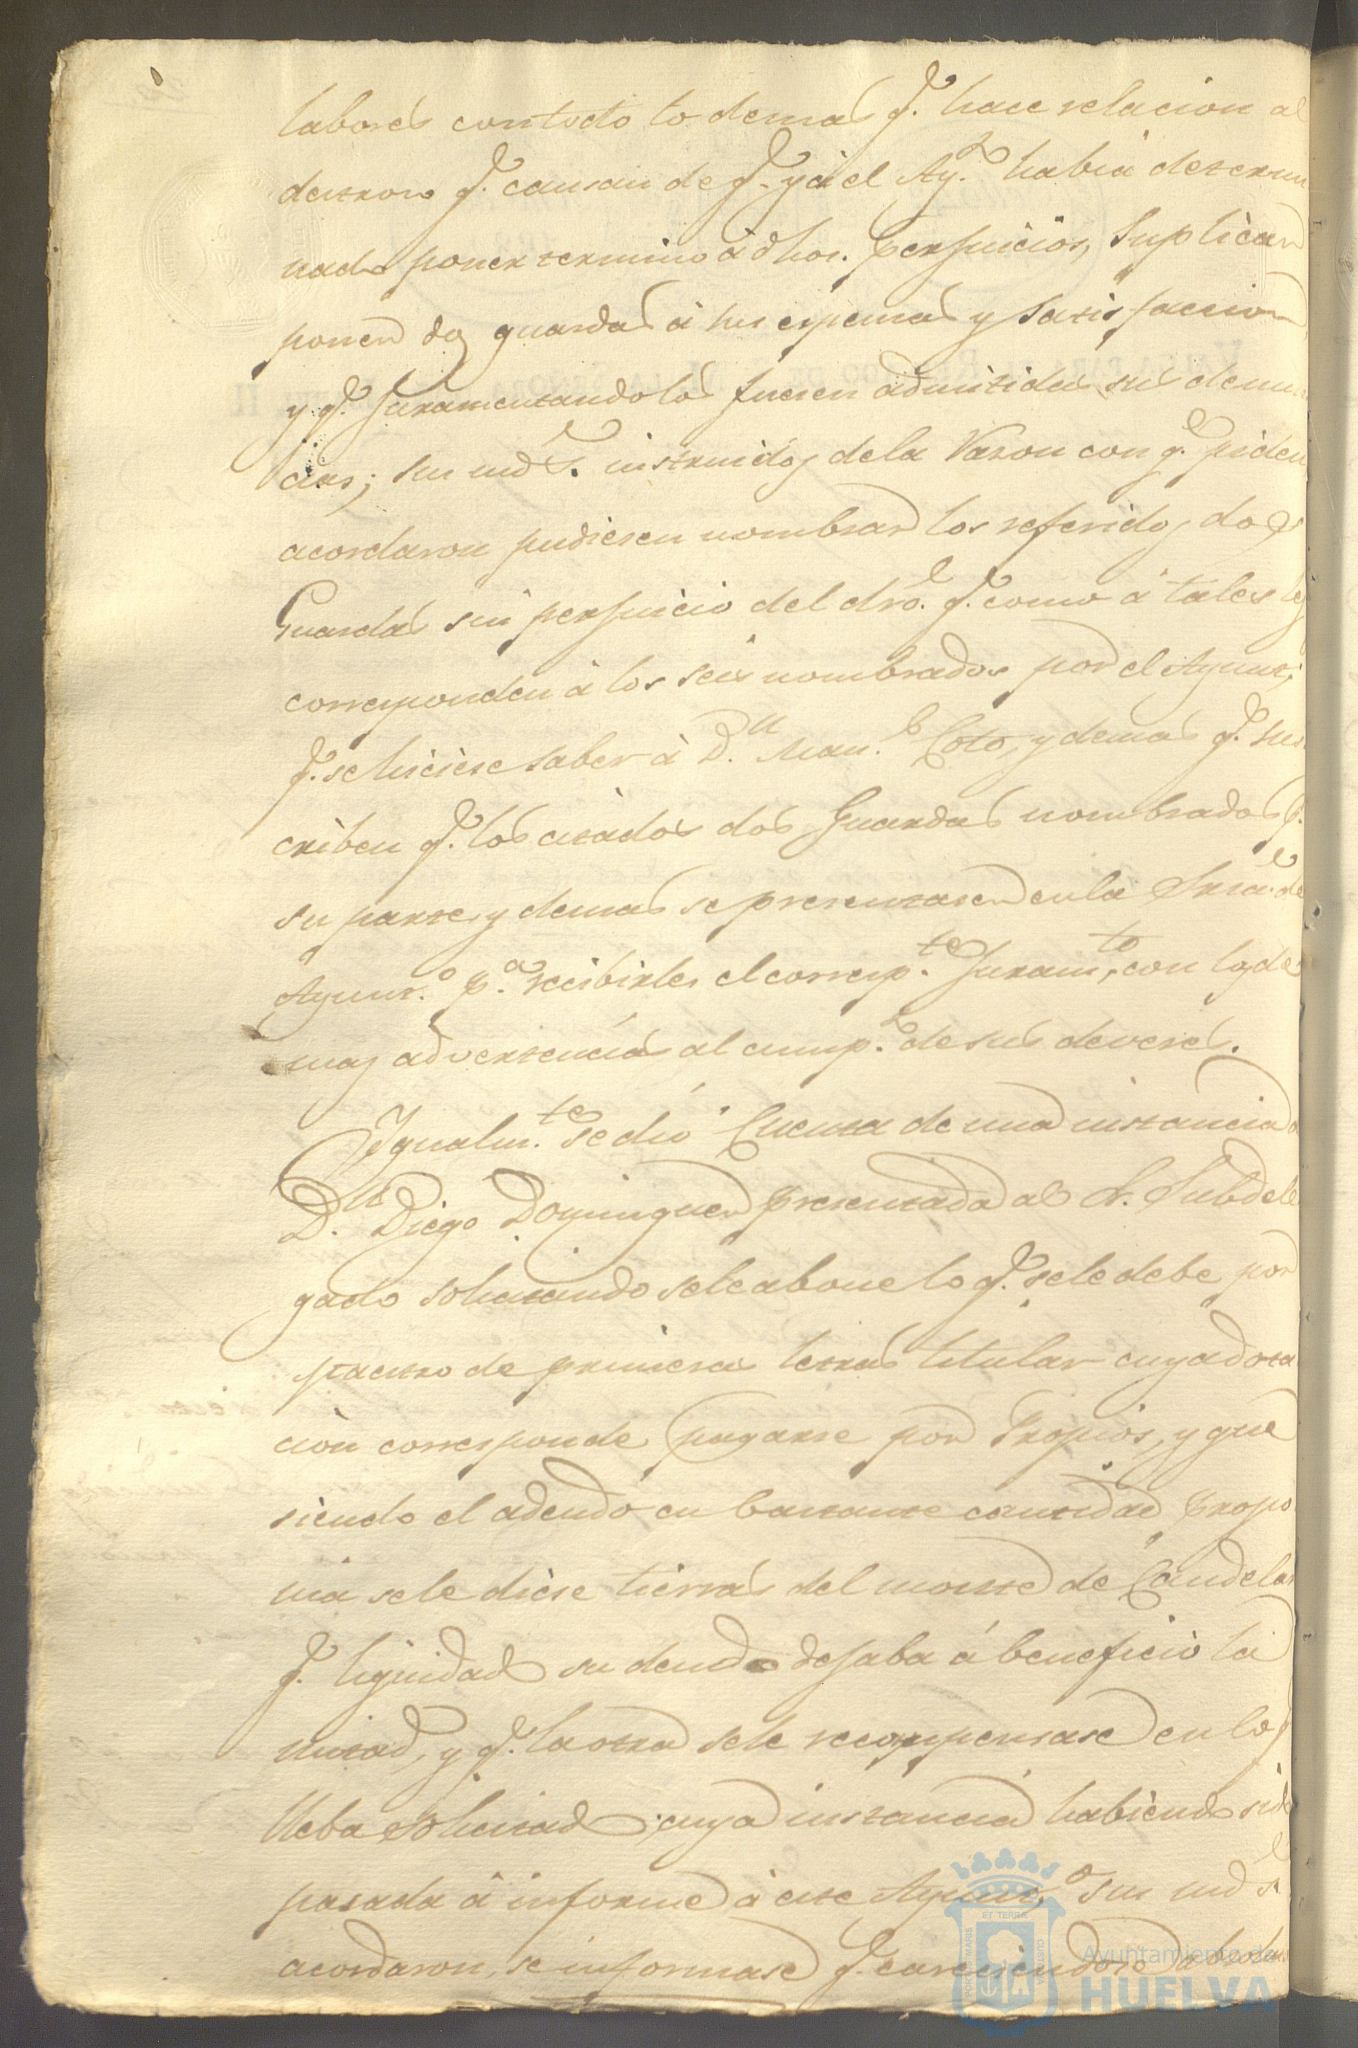 labores con todo lo demas q.e hace relacion al
destrozo q.e causan de q.e ya el Ay.to habia determi
nado poner termino á dhos. perjuicios, suplican
ponen dos guardas á sus espensas y satisfaccion,
y q.e juramentandolos fuesen admitidas sus denun
cias; sus md.s instruidos de la razon con q.e piden
acordaron pudiesen nombrar los referidos dos
Guardas sin perjuicio del dro. q.e como á tales les
corresponden á los seis nombrados por el Ayunt.o
q.e se hiciese saber á D.n Man.l Coto, y demas q.e sus
criben q.e los citados dos Guardas nombrados p.r
su parte y demas se presentasen en la Sria. de
Ayunt.o p.a recibirles el corresp.te Juram.to, con los de
mas advertencias al cump.to de sus deveres.
Igualm.te se dió Cuenta de una instancia de
D.n Diego Dominguez presentada al S. Subdele
gado solicitando se le abone lo q.e se le debe por
maestro de primeras letras titular cuya dota
ción corresponde pagarse por Propios, y que
siendo el adeudo en bastante cantidad propo
nia se le diese tierras del monte de Candelas
q.e liquidado su deudo dejaba á beneficio la
mitad, y q.e la otra se le recompensase en lo q.e
lleba solicitado; cuya instancia habiendo sido
pasada á informe á este Ayunt.o sus md.s
acordaron, se informase q.e careciendose
Ayuntamiento de
HUELVA